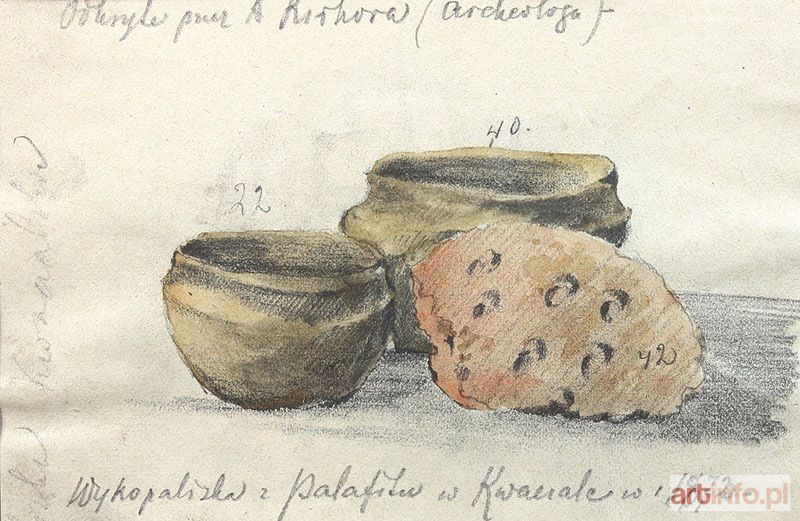 Odkryte przez A Kirkora (Archeologa)
40.
22.
42
Wykopaliska z Palafitu w Kwaczale w
artinfo.pl